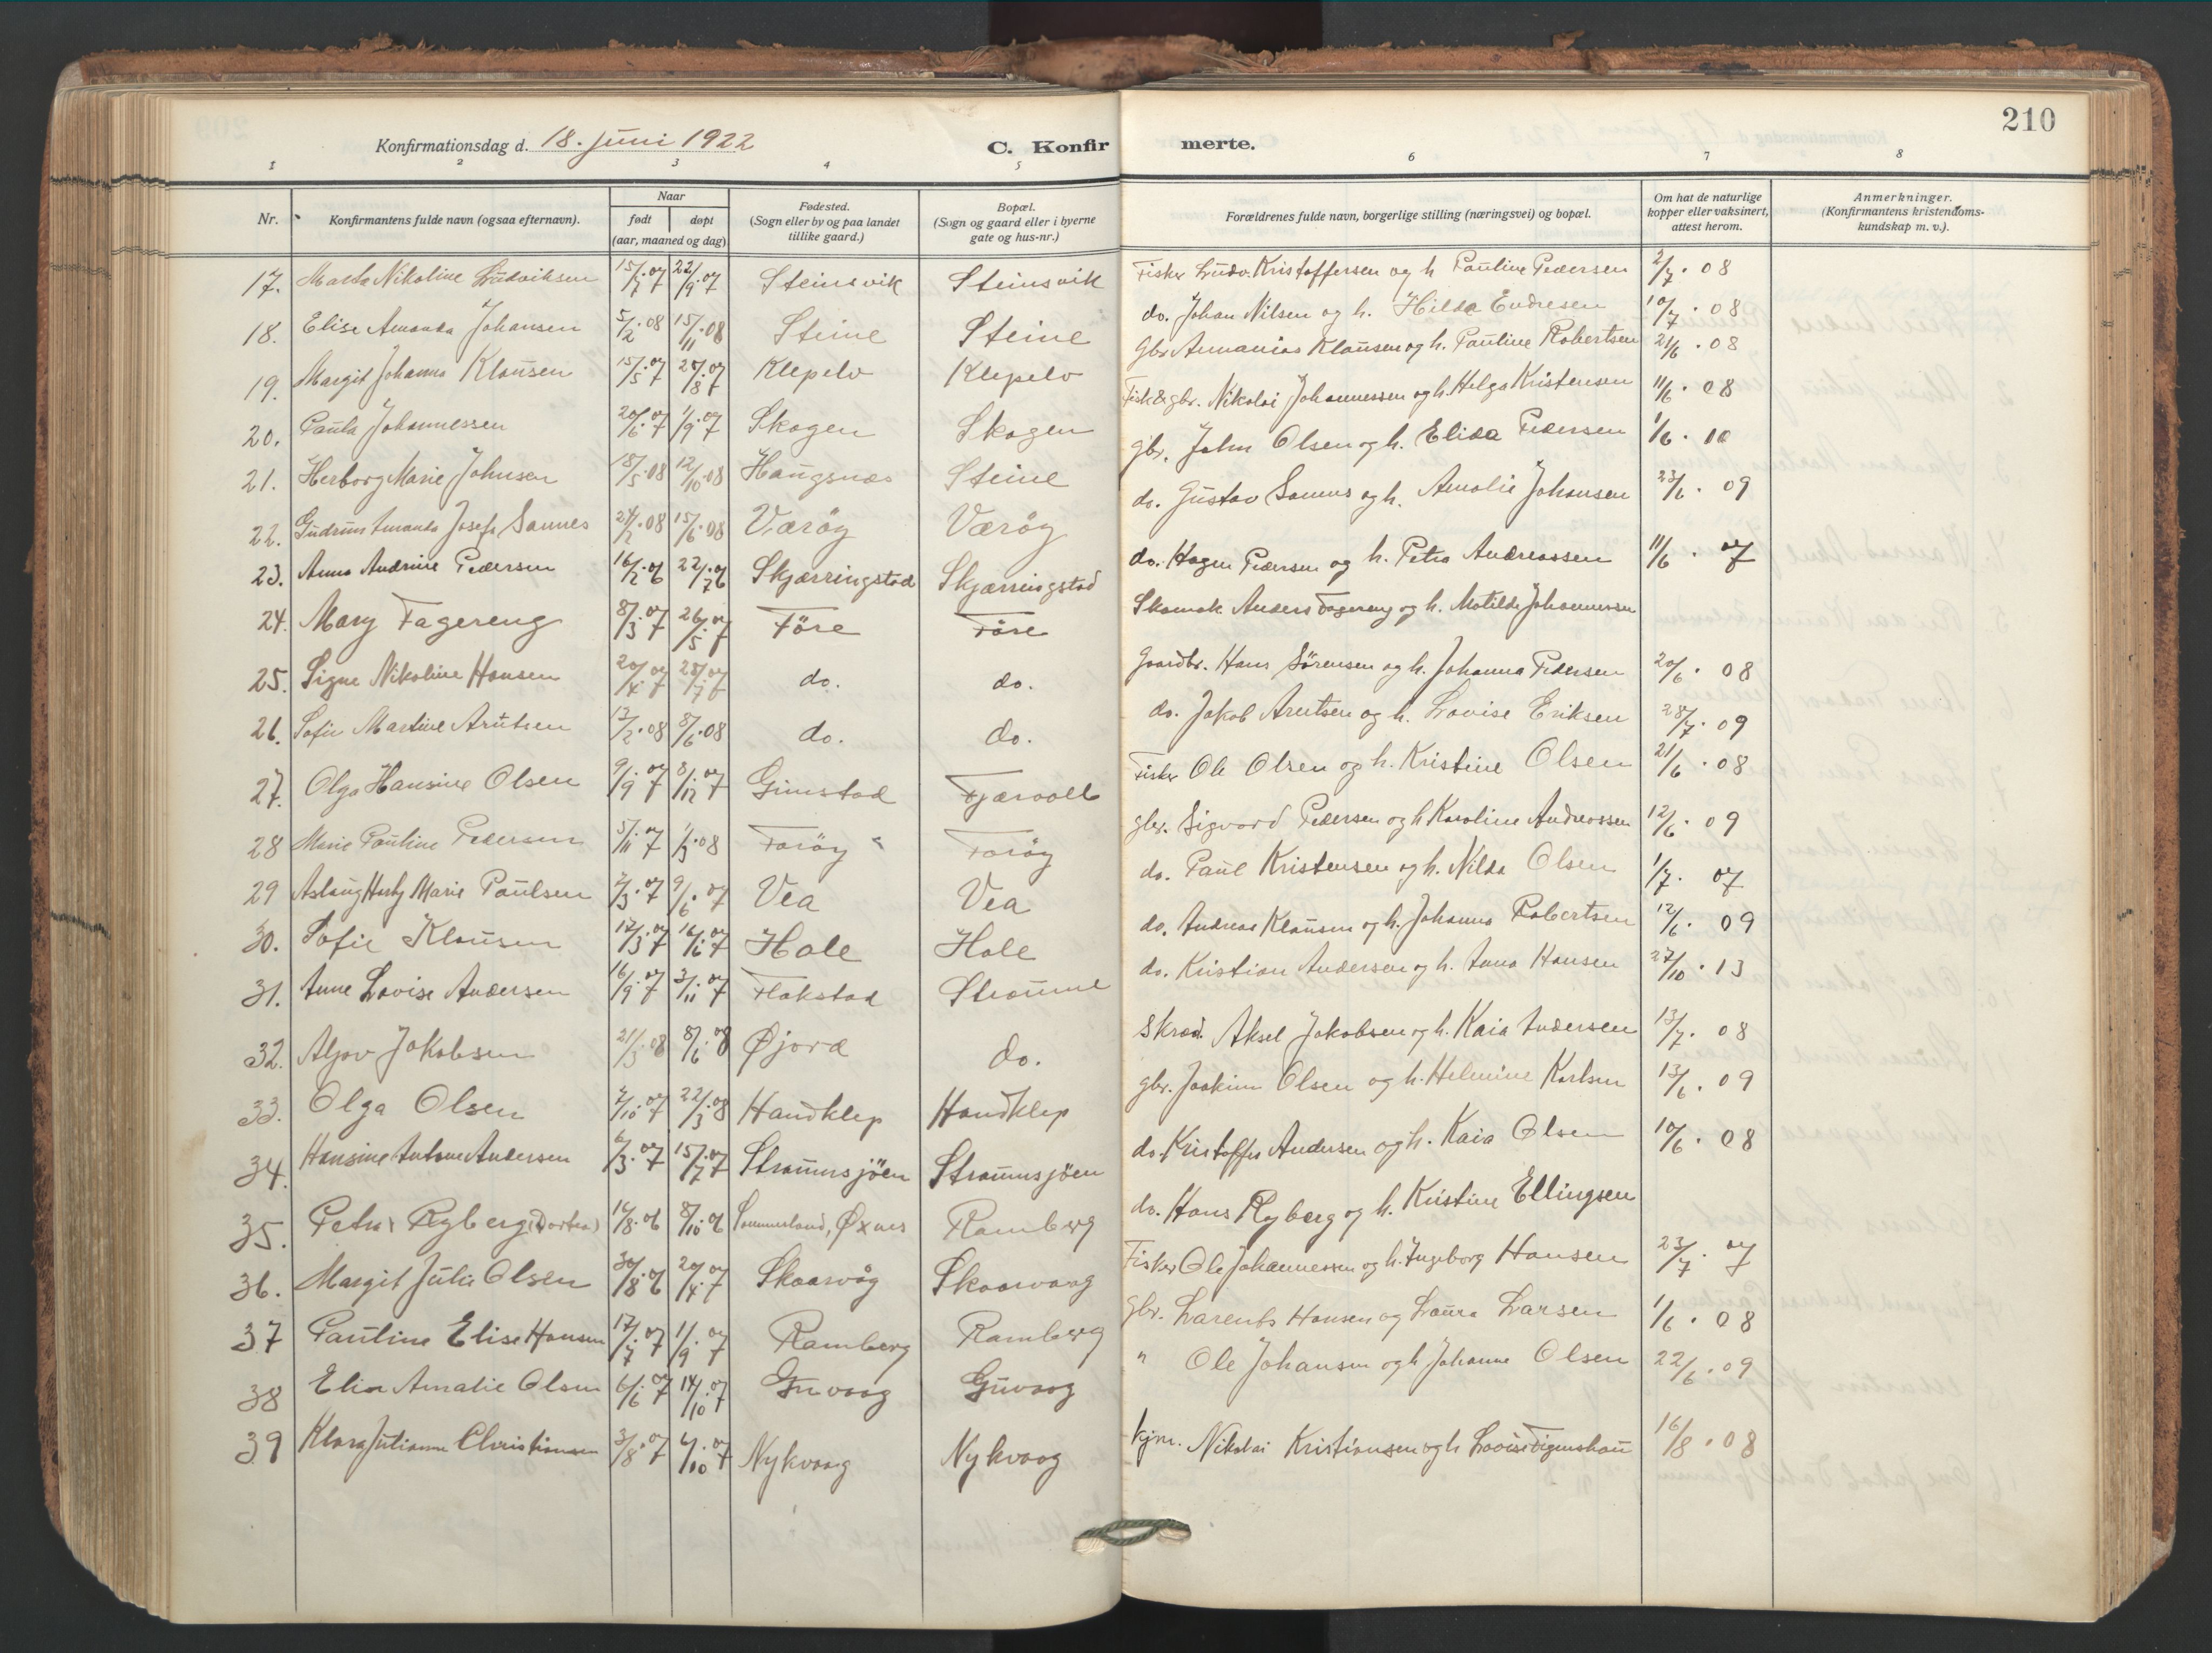 210
Konfirmationsdag d. 18. juni 1922 C. Konfirmerte.
1 2 3 4 5 6 7 8
Nr. Konfirmantens fulde navn (ogsaa efternavn). Naar født døpt (aar, maaned og dag) Fødested. (Sogn eller by og paa landet tillike gaard.) Bopæl. (Sogn og gaard eller i byerne gate og hus-nr.) Forældrenes fulde navn, borgerlige stilling (næringsvei) og bopæl. Om hat de naturlige kopper eller vaksinert, attest herom. Anmerkninger. (Konfirmantens kristendomskundskap m. v.).
17. Nikoline Ludviksen 15/7.07 22/9.07 Steinsvik Steinsvik Fisker Ludv. Kristoffersen og h. Pauline Pedersen 2/7.08
18. Elise Amanda Johansen 5/2.08 15/11.08 Steine Steine do. Johan Nilsen og h. Hilda Endresen 10/7.08
19. Margit Johanna Klausen 15/5.07 25/8.07 Klepelv Klepelv Gbr. Annanias Klausen og h. Pauline Robertsen 21/6.08
20. Paula Johannessen 20/6.07 1/9.07 Skogen Skogen Fisk & gbr. Nikolai Johannessen og h. Helga Kristensen 11/6.08
21. Herborg Marie Johnsen 18/5.08 12/10.08 Haugsnes Steine gbr. John Olsen og h. Elida Pedersen 1/6.10
22. Gudrun Amanda Josefe Sannes 24/2.08 15/6.08 Værøy Værøy do. Gustav Sannes og h. Amalie Johansen 23/6.09
23. Anna Andrine Pedersen 16/2.06 22/7.06 Skjærringstad Skjærringstad do. Hagen Pedersen og h. Petra Andreassen 11/6.07
24. Mary Fagereng 8/3.07 26/5.07 Före Före Skomak Anders Fagereng og h. Matilde Johannessen
25. Signe Nikoline Hansen 20/4.07 28/7.07 do. do. Gaardbr. Hans Sörensen og h. Johanna Pedersen 20/6.08
26. Sofie Martine Arntsen 13/2.08 8/6.08 do. do. do. Jakob Arentsen og h. Lovise Eriksen 28/7.09
27. Olga Hansine Olsen 9/9.07 8/12.07 Grimstad Fjærvoll Fisker Ole Olsen og h. Kristine Olsen 21/6.08
28 Marie Pauline Pedersen 5/11.07 1/3.08 Faröy Faröy gbr. Sigvard Pedersen og h. Karoline Andreassen 12/6.09
29 Aslaug Marie Paulsen 2/3.07 9/6.07 Vea Vea do. Paul Kristensen og h. Nilda Olsen 1/7.07
30. Sofie Klausen 17/3.07 16/6.07 Hole Hole do. Andreas Klausen og h. Johanna Robertsen 12/6.09
31. Anne Lovise Andersen 16/9.07 3/11.07 Flakstad Straume do. Kristian Andersen og h. Anna Hansen 27/10.13
32. Aljov Jakobsen 21/3.08 8/6.08 Øjord do. Skræd. Aksel Jakobsen og h. Kaia Andersen 13/7.08
33. Olga Olsen 2/10.07 22/3.08 Handklep Handklep gbr. Joakim Olsen og h. Helmine Karlsen 13/6.09
34. Hansine Antone Andersen 6/3.07 15/7.07 Straumsjöen Straumsjöen do. Kristoffer Andersen og h. Kaia Olsen 10/6.08
35. Petra Ryberg (Dortea) 16/8.06 8/10.06 Sommerland, Øxnes Ramberg do. Hans Ryberg og h. Kristine Ellingsen
36. Margit Julie Olsen 30/8.06 20/4.07 Skaarvåg Skaarvaag Fisker Ole Johannessen og h. Ingeborg Hansen 23/7.07
37 Pauline Elise Hansen 17/7.07 1/9.07 Ramberg Ramberg gbr. Larents Hansen og Laura Larsen 1/6.08
38 Elin Amalie Olsen 6/6.07 14/10.07 Guvaag Guvaag " Ole Johansen og h. Johanne Olsen 22/6.09
39 Klara Julianne Christiansen 3/8.07 6/10.07 Nykvaag Nykvaag kjm. Nikolai Kristiansen og h. Lovise Figenshau 16/8.08